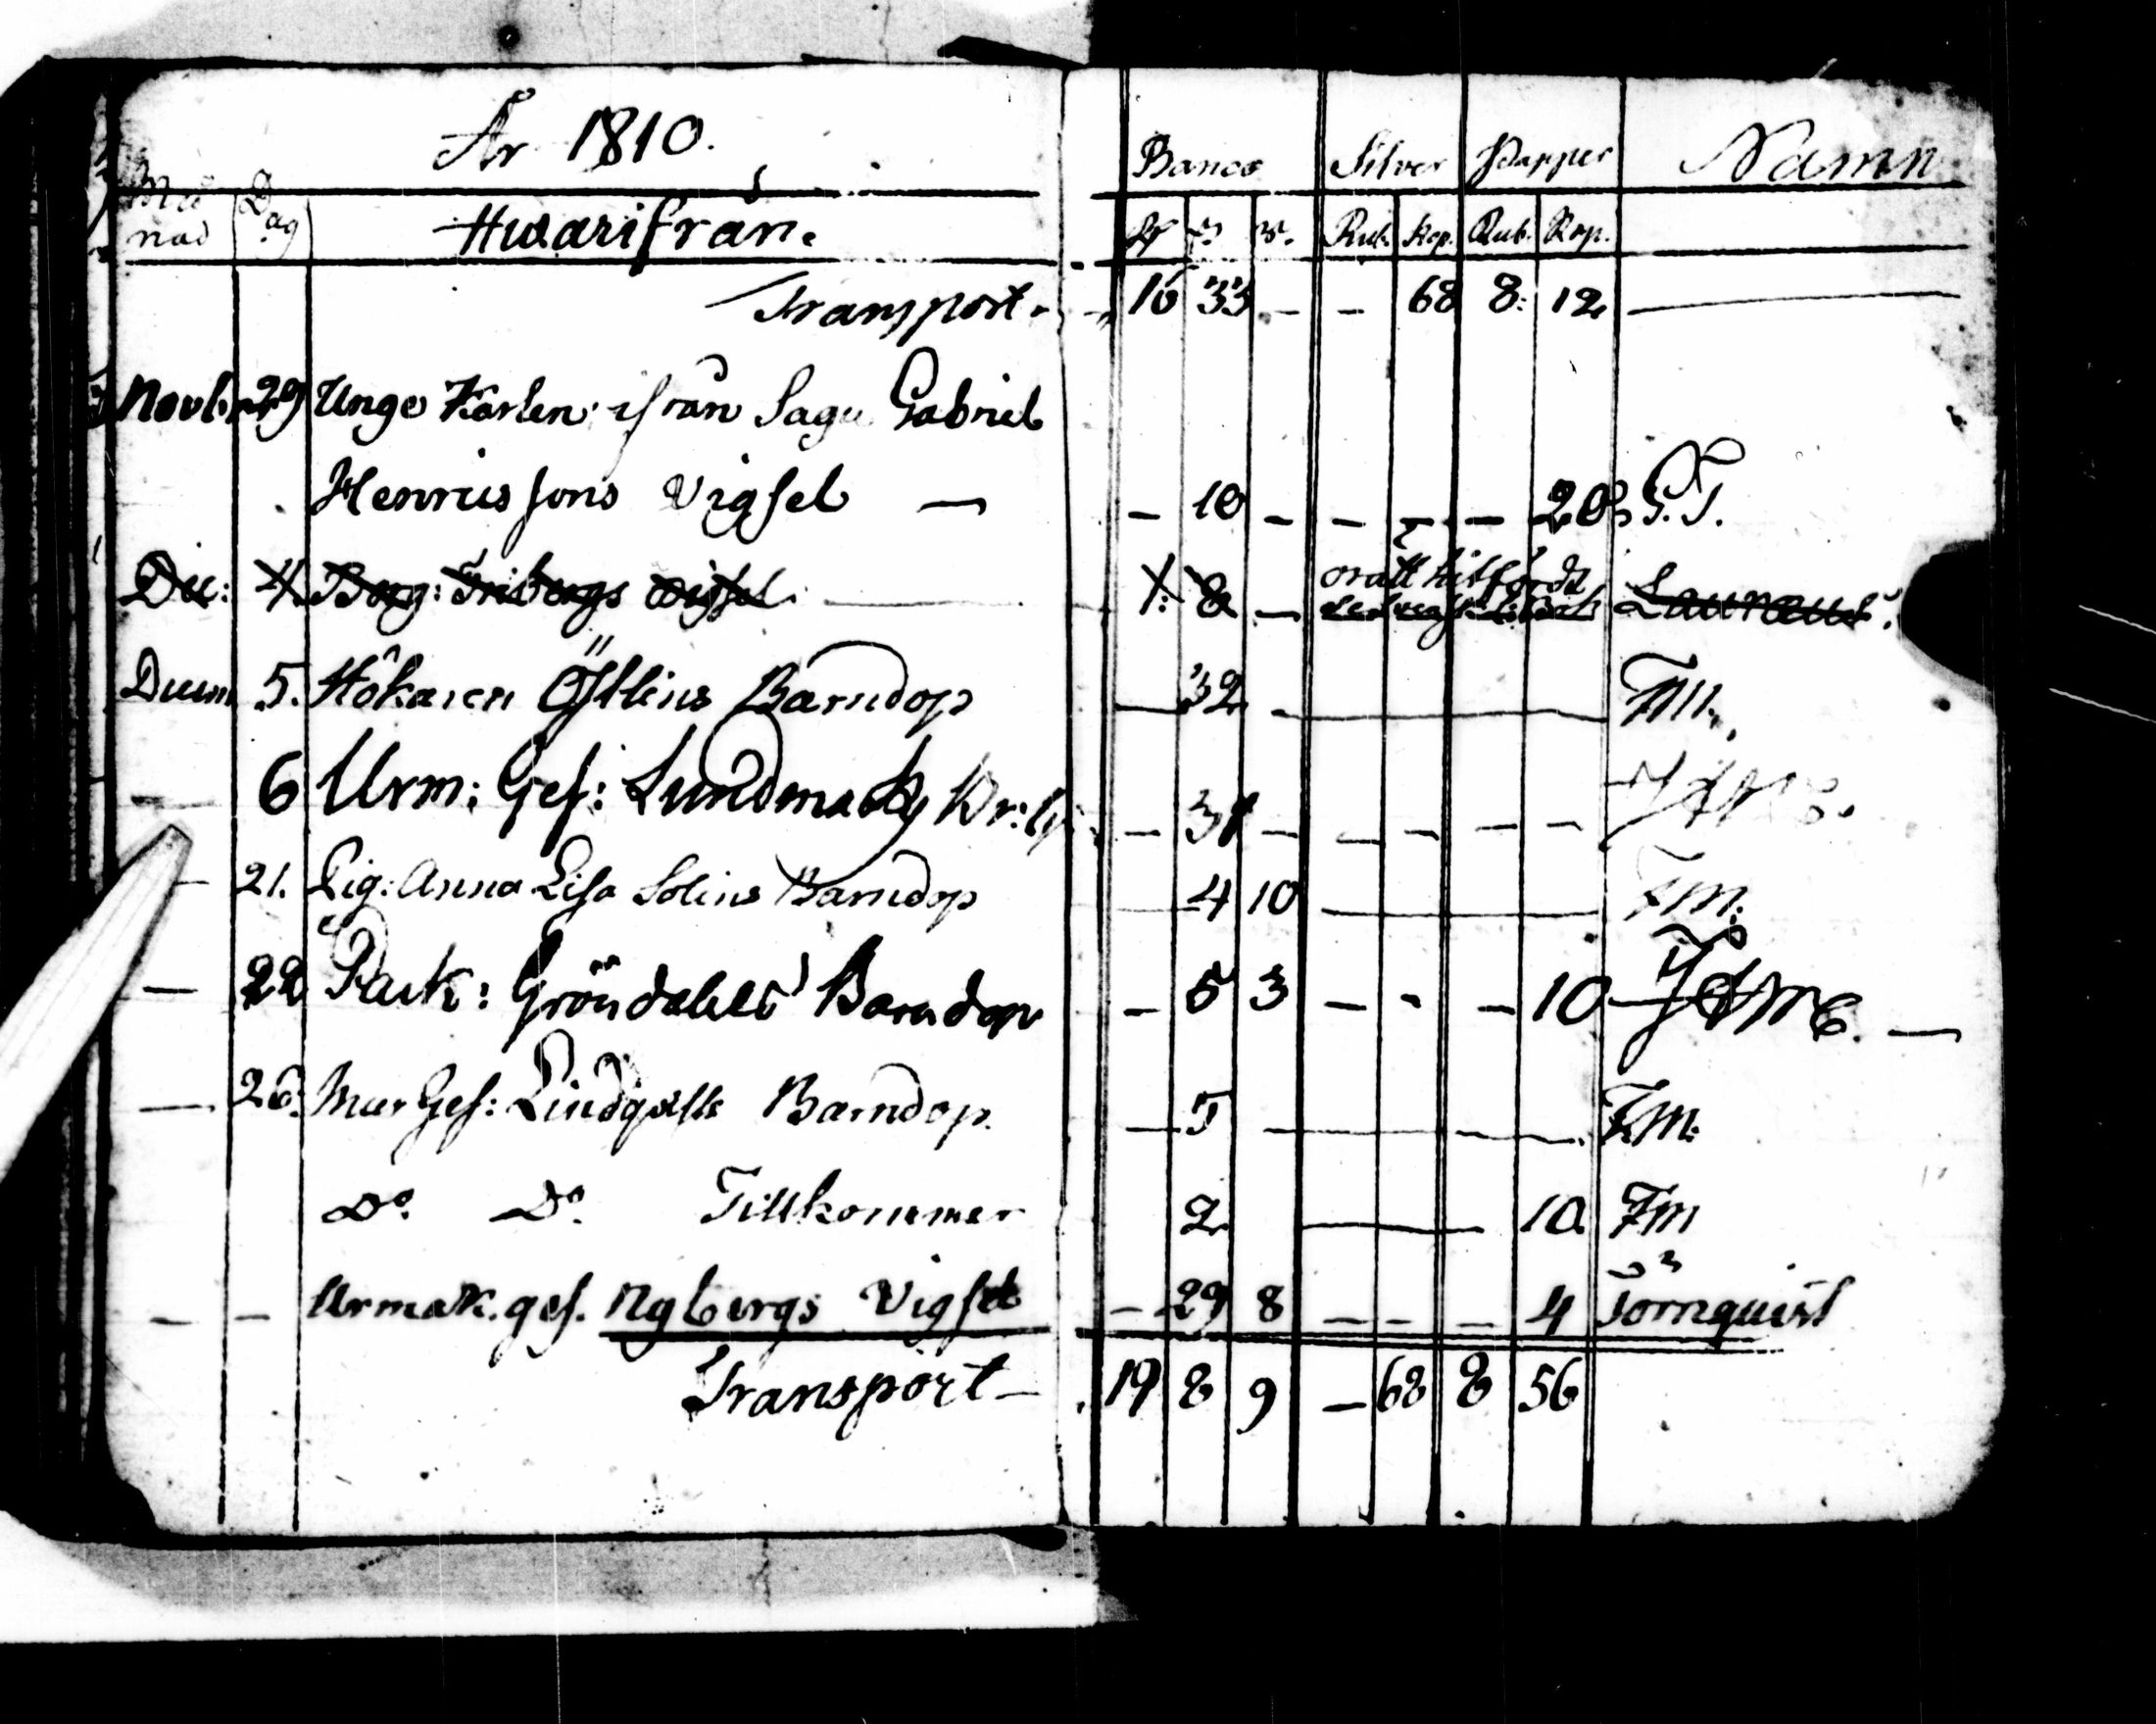 År 1810.
Månad Dag Hwarifrån. Banco Silver Papper Namn
Rub. Kop. Rub. Kop.
Transport. 16 33 — — 68 8: 12
Novbr 29 Unge Karlen ifrån Sagu Gabriel
Henrics sons Vigsel — — 10 — — — — 20 G.T.
Dec: 4. Borg: Fribergs Vigsel 1: 8 — orätt hitfördt
Decem 5. Hökaren Östlins Barndop — 32 — Fm.
6 Urm: Ges: Lundmarks — 31 — — — — —
— 21. Pig: Anna Lisa Solins Barndop 4 10 — Fm.
— 22 Pack: Gröndahls Barndop — 5 3 — - — 10
— 26. Mur Ges: Lindqvists Barndop. — 5 — Fm.
Do. Do. Tillkommer 2 — 10 Fm
— — Urmak. ges. Nybergs Vigsel — 29 8 — — — 4 Törnquist
Transport — 19 8 9 — 68 8 56